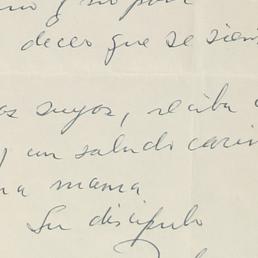 decer que se sien
os suyos, reciba
y un saludo cari
na mama
Su discipulo